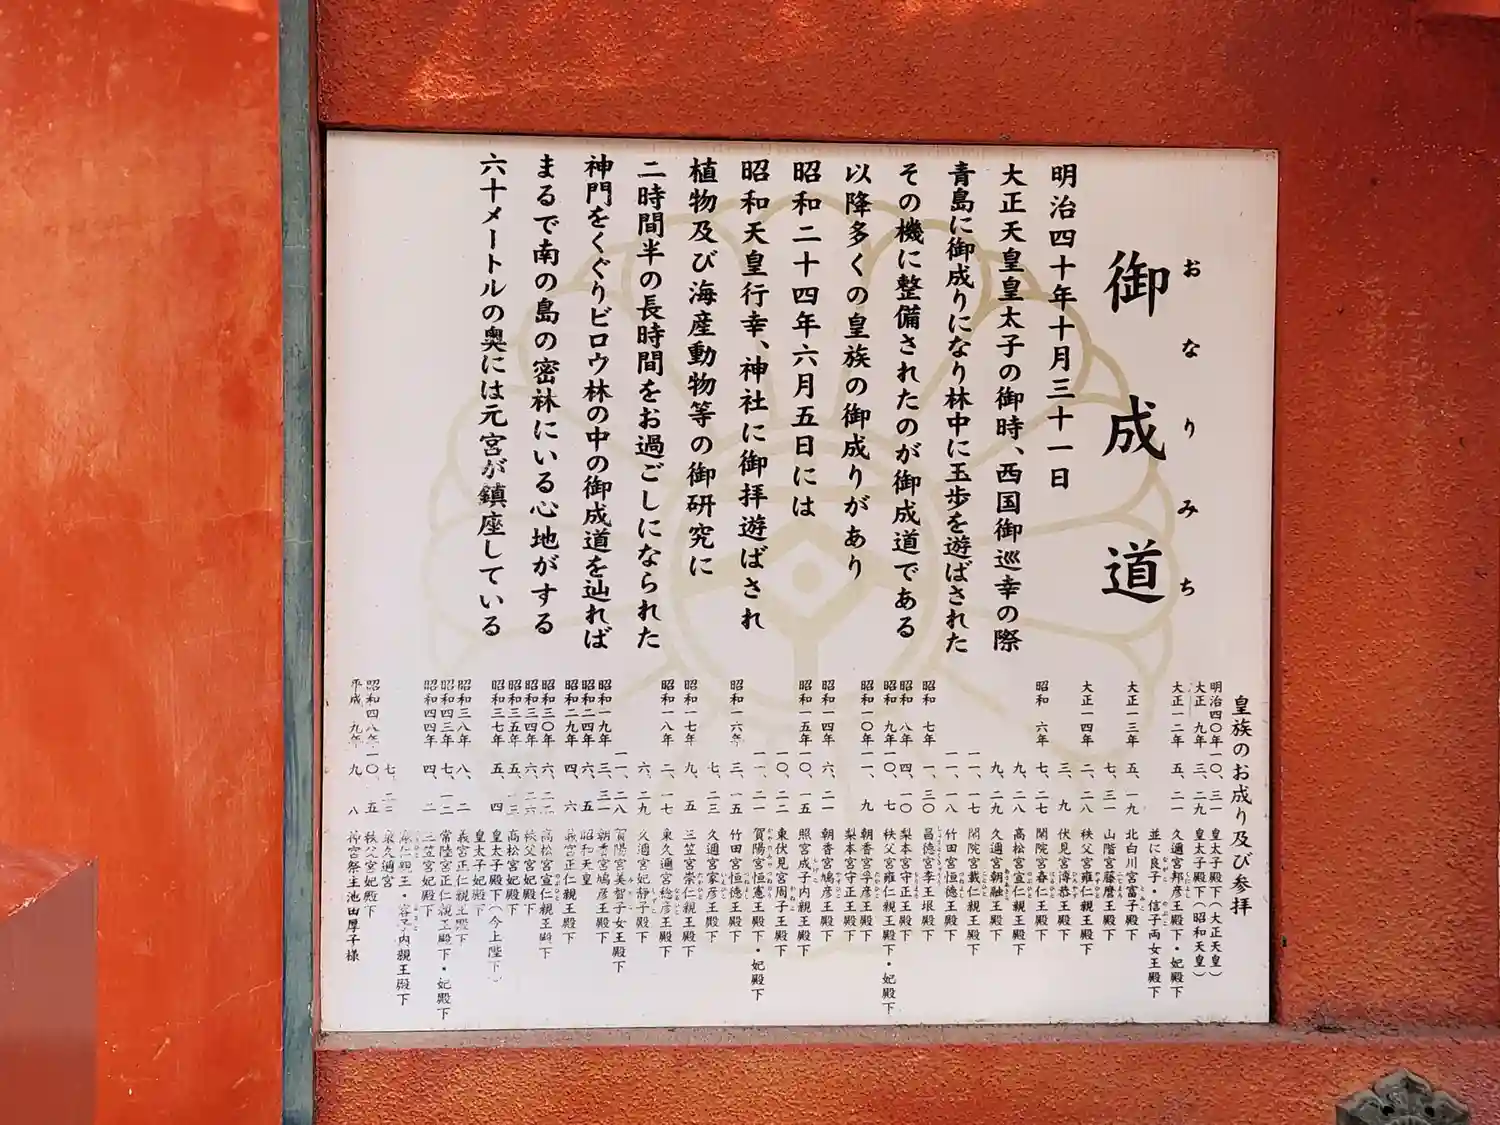 御成道
おなりみち
明治四十年十月三十一日
大正天皇皇太子の御時、西国御巡幸の際
青島に御成りになり林中に玉歩を遊ばされた
その機に整備されたのが御成道である
以降多くの皇族の御成りがあり
昭和二十四年六月五日には
昭和天皇行幸、神社に御拝遊ばされ
植物及び海産動物等の御研究に
二時間半の長時間をお過ごしになられた
神門をくぐりビロウ林の中の御成道を辿れば
まるで南の島の密林にいる心地がする
六十メートルの奥には元宮が鎮座している
皇族のお成り及び参拝
明治四〇年一〇、三一 皇太子殿下(大正天皇)
大正 九年 三、二九 皇太子殿下(昭和天皇)
大正一二年 五、二一 久邇宮邦彦王殿下・妃殿下
並に良子・信子両女王殿下
大正一三年 五、一九 北白川宮富子殿下
七、三一 山階宮藤麿王殿下
大正一四年 二、二八 秩父宮雍仁親王殿下
三、九 伏見宮溥恭王殿下
昭和 六年 七、二七 閑院宮春仁王殿下
九、二八 高松宮宣仁親王殿下
九、二九 久邇宮朝融王殿下
一一、一七 閑院宮載仁親王殿下
一一、一八 竹田宮恒徳王殿下
昭和 七年 一、三〇 昌徳宮李王垠殿下
昭和 八年 四、一〇 梨本宮守正王殿下
昭和 九年一〇、七 秩父宮雍仁親王殿下・妃殿下
昭和一〇年一一、九 朝香宮孚彦王殿下
梨本宮守正王殿下
昭和一四年 六、二一 朝香宮鳩彦王殿下
昭和一五年一〇、一五 照宮成子内親王殿下
一〇、二二 東伏見宮周子王殿下
一一、二一 賀陽宮恒憲王殿下・妃殿下
昭和一六年 三、一五 竹田宮恒徳王殿下
七、二三 久邇宮家彦王殿下
昭和一七年 九、五 三笠宮崇仁親王殿下
昭和一八年 二、一七 東久邇宮稔彦王殿下
六、二九 久邇宮妃静子殿下
一一、二八 賀陽宮美智子女王殿下
昭和一九年 三、三一 朝香宮鳩彦王殿下
昭和二四年 六、五 昭和天皇
昭和二九年 四、六 義宮正仁親王殿下
昭和三〇年 六、 高松宮宣仁親王殿下
昭和三四年 六、二六 秩父宮妃殿下
昭和三五年 五、 高松宮妃殿下
昭和三七年 五、四 皇太子殿下(今上陛下)
皇太子妃殿下
昭和三八年 八、二 義宮正仁親王殿下
昭和四三年 七、一二 常陸宮正仁親王殿下・妃殿下
昭和四四年 四、二 三笠宮妃殿下
七、 親王・容子内親王殿下
東久邇宮
昭和四八年一〇、五 秩父宮妃殿下
平成 九年 九、八 神宮祭主池田厚子様